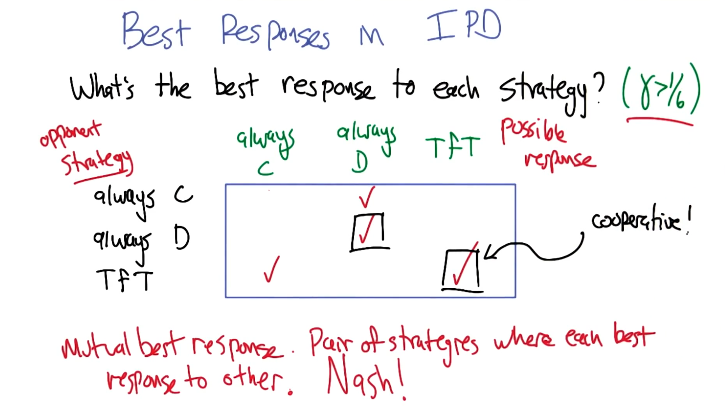 Best Responses in IPD
What's the best response to each strategy? (γ>1/6)
opponent strategy
always C
always D
TfT
possible response
always C
always D
TfT
cooperative!
Mutual best response. Pair of strategies where each best
response to other. Nash!